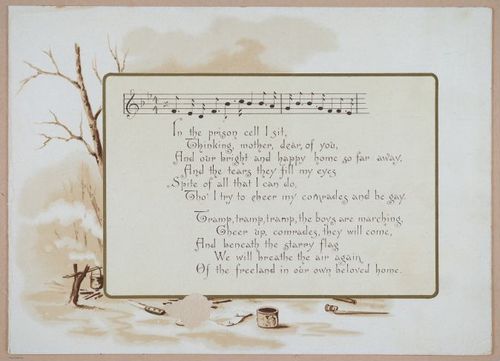 In the prison cell I sit,
Thinking, mother, dear, of you,
And our bright and happy home so far away,
And the tears they fill my eyes
Spite of all that I can do,
Tho' I try to cheer my comrades and be gay.
Tramp, tramp, tramp, the boys are marching,
Cheer up, comrades, they will come,
And beneath the starry flag
We will breathe the air again,
Of the freeland in our own beloved home.